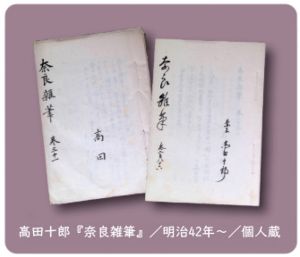 奈良雑筆
巻三十一
高田
奈良雑筆
高田十郎
高田十郎『奈良雑筆』／明治42年〜／個人蔵